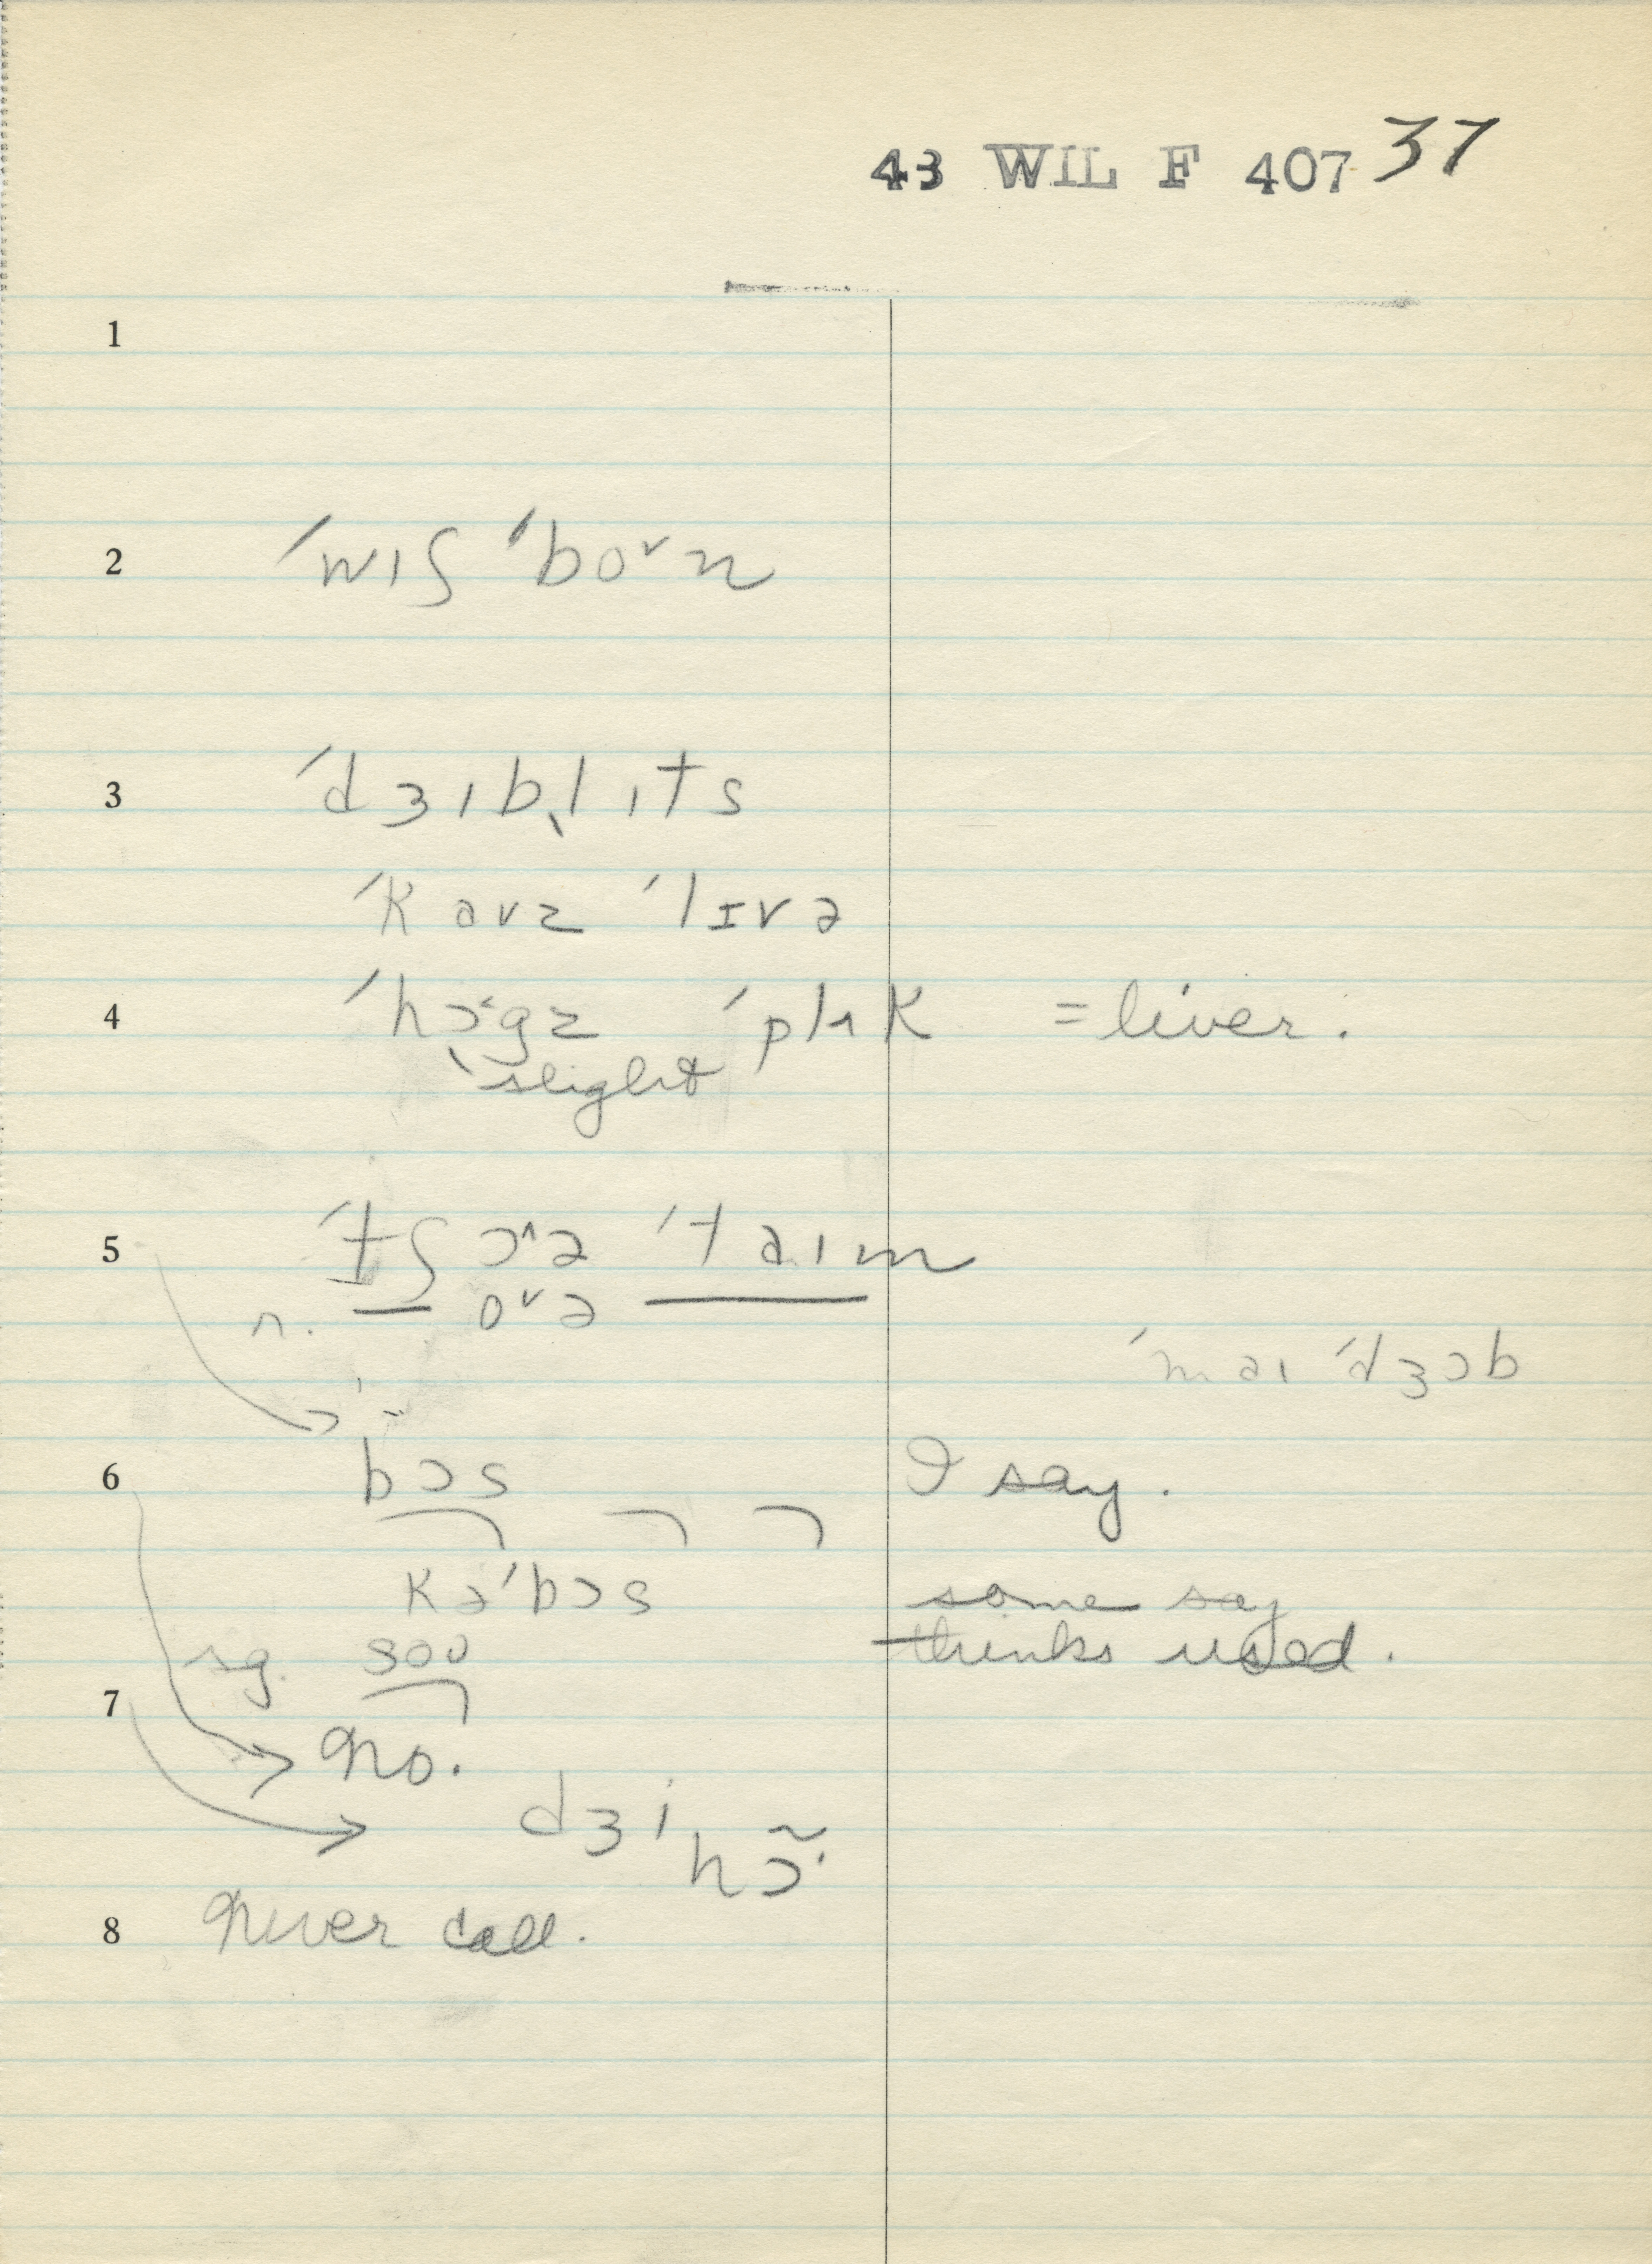 43 WIL F 407 37
1
2 ˈwɪʃ ˈboˇn
3 ˈdʒɪbˎlɪts
ˈkauz ˈlɪvə
4 ˈhɔ˂gz ˈplʌk = liver.
slight
5 ˈtʃɔ^ə ˈtaɪm
r. — oˇə —
ˈmaɪ ˈdʒɔb
6 bɔs I say.
kəˈbɔs some say
sg. sou thinks used.
7
No.
dʒi hɔ̃·
8 Never call.